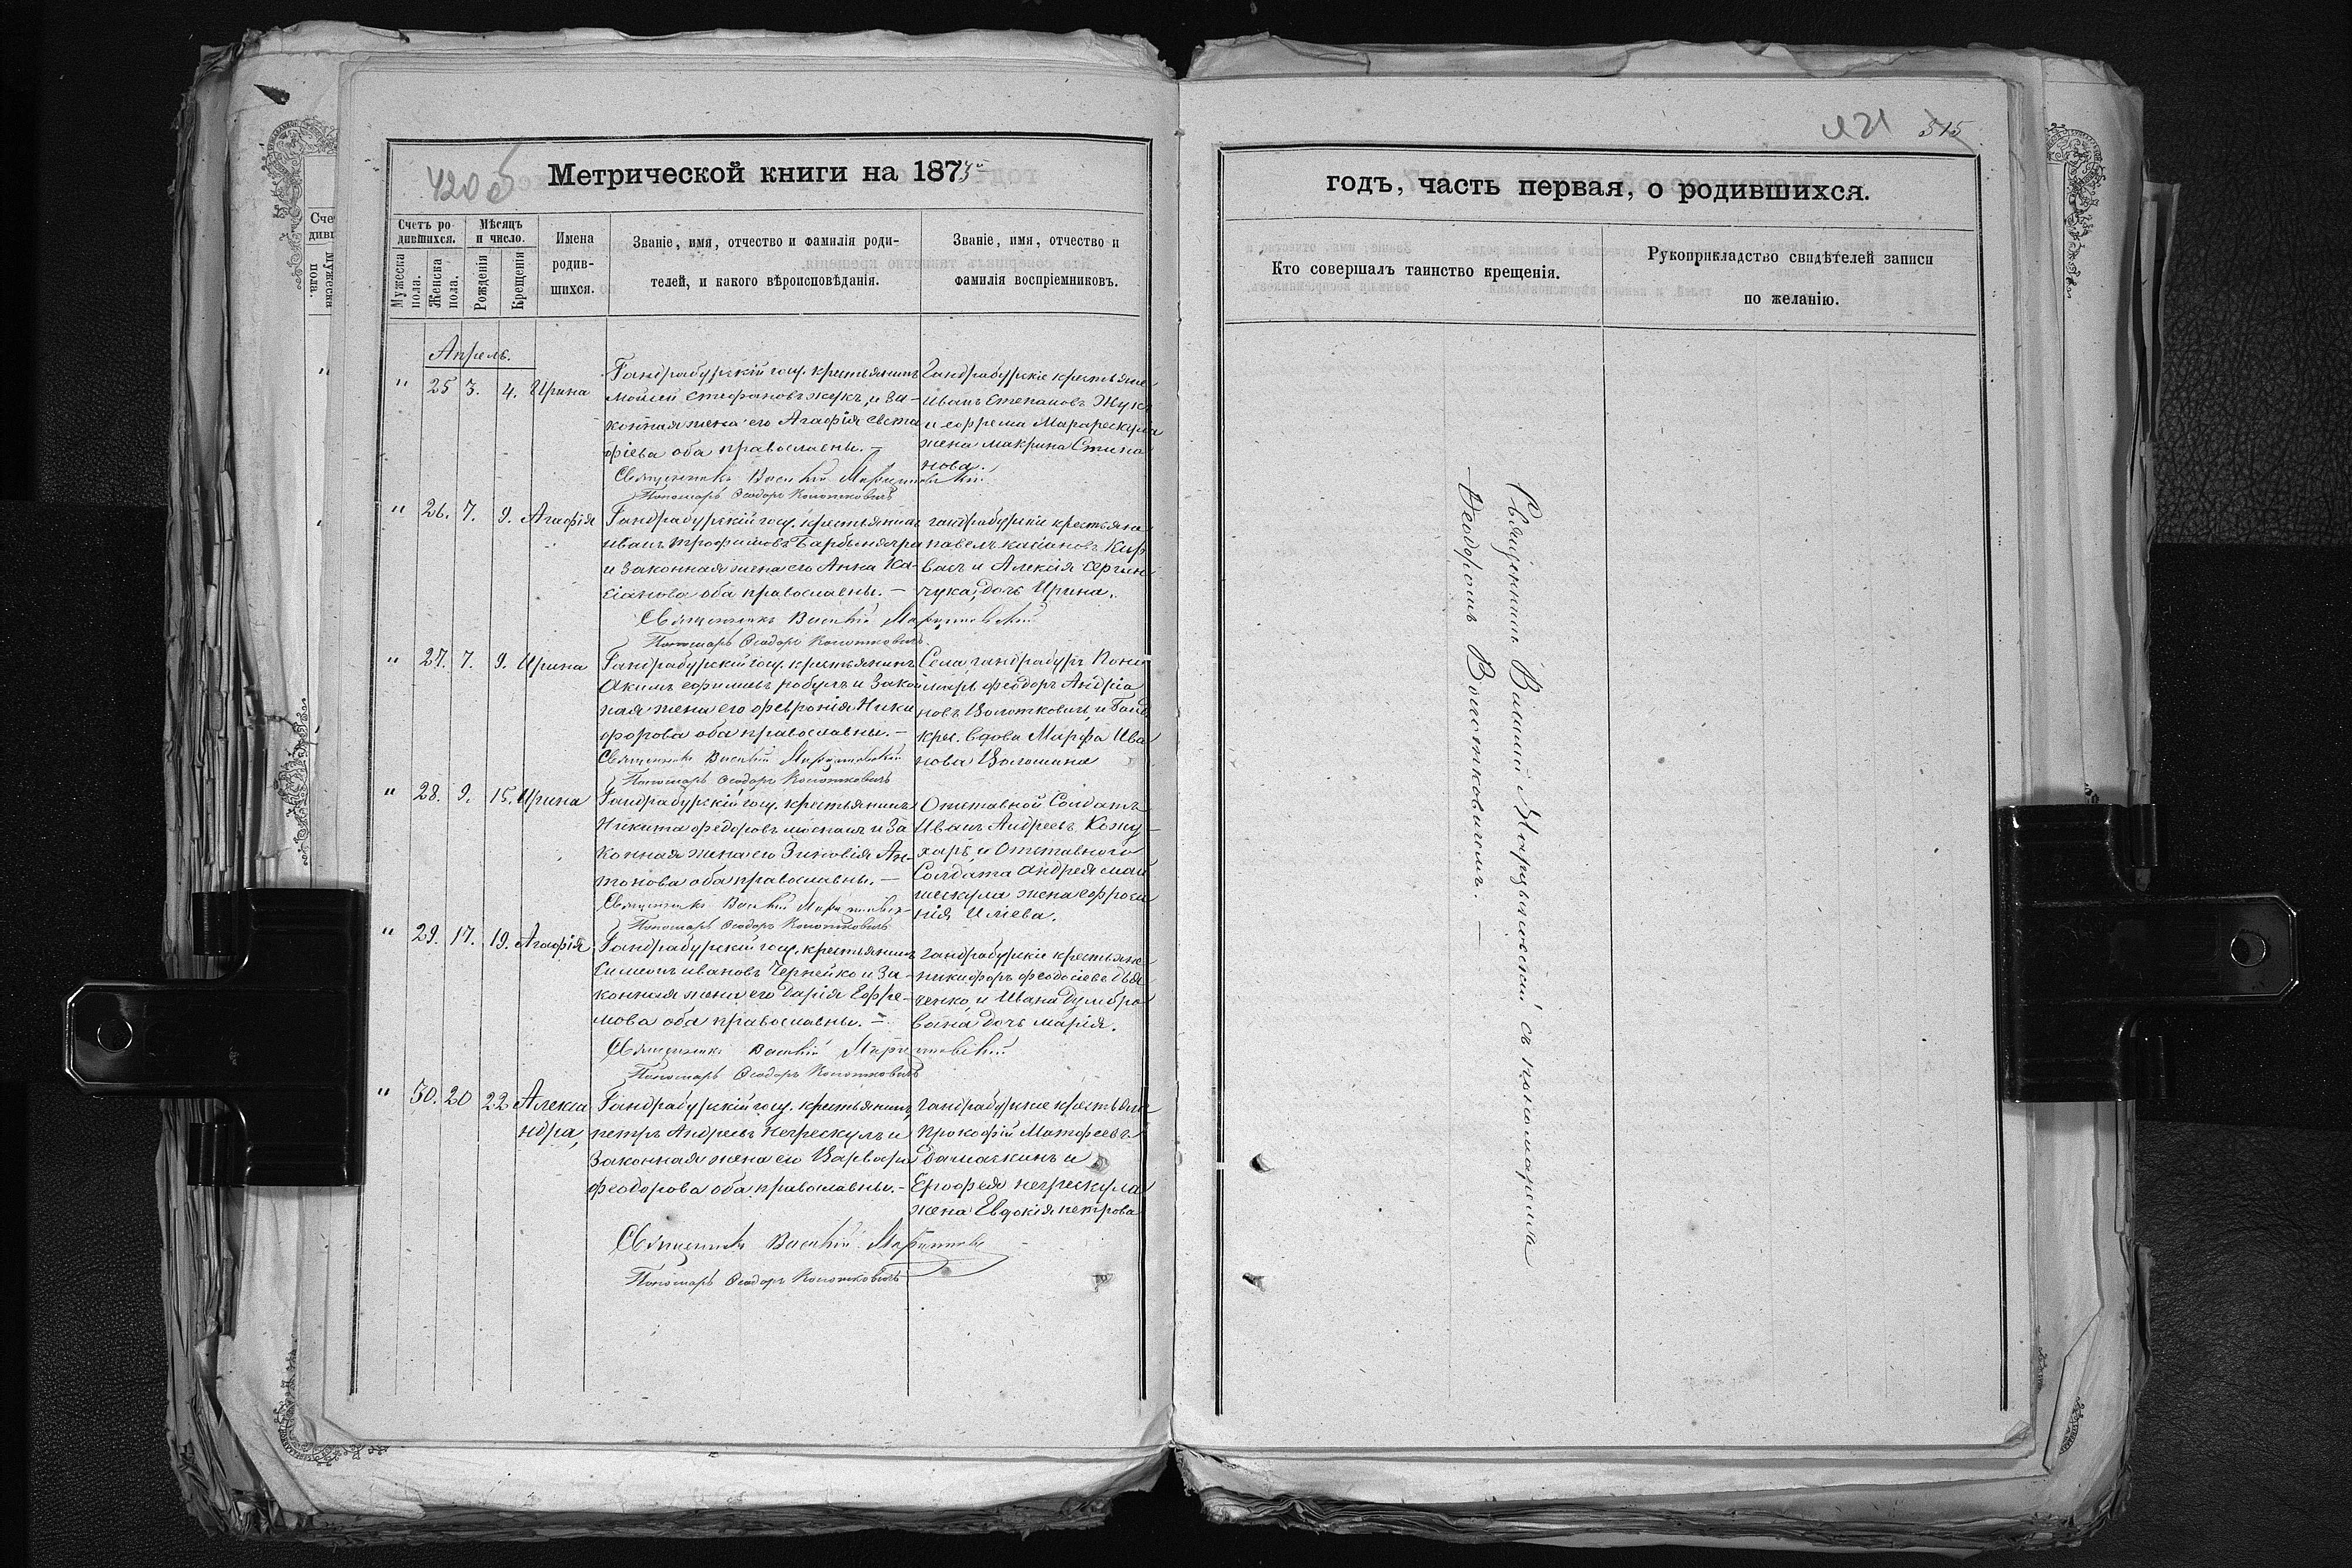 420 об
Метрической книги на 1873й
Счетъ ро-
дившихся.
Мѣсяцъ
и число.
Мужеска
пола.
Женска
пола.
Рожденія
Крещенія
Имена
родив-
шихся.
Званіе, имя, отчество и фамилія роди-
телей, и какого вѣроисповѣданія.
Званіе, имя, отчество и
фамилія воспріемниковъ.
Апрель.
" 25 3. 4. Ирина
Гандрабурскій госу. крестьянинъ
Мойсей Стефановъ жукъ, и За-
конная жена его Агафія Евста
фіева оба православны. —
Священникъ Василій
Пономарь Ѳеодоръ
Гандрабурскіе крестьяне
Иванъ Степановъ Жукъ
и ефрема
жена макрина Степа
нова.
" 26. 7. 9. Агафія
Гандрабурскій госу. крестьянинъ
иванъ трофимовъ
и Законная жена его Анна Ка-
сіанова оба православны. —
Священникъ Василій
Пономарь Ѳеодоръ
гандрабурскіе крестьяне
павелъ касіановъ
и Алексія
дочь Ирина.
" 27. 7. 9. Ирина
Гандрабурскій госу. крестьянинъ
Акимъ ефимовъ робулъ и Закон
ная жена его феѵронія Ники
форова оба православны. —
Священникъ Василій
Пономарь Ѳеодоръ
Села гандрабуръ Поно
марь феодоръ Андріа
новъ и Ганд
кре. вдова Марфа Ива
нова Волошина
" 28. 9. 15. Ирина
Гандрабурскій госу. крестьянинъ
Никита федоровъ и За
конная жена его Зиновія Ан-
тонова оба православны. —
Священникъ Василій
Пономарь Ѳеодоръ
Отставной Солдатъ
Иванъ Андреевъ Кожу-
харь и Отставного
Солдата андрея
жена ефроси
нія Иліева.
" 29. 17. 19. Агафія
Гандрабурскій госу. крестьянинъ
Симеонъ ивановъ Чернейко и За-
конная жена его Дарія Ефре-
мова оба православны. —
Священникъ Василій
Пономарь Ѳеодоръ
гандрабурскіе крестьяне
никифоръ феодосіевъ Дья
ченко и Ивана Думбро
вана дочь марія.
" 30. 20 22 Алекса
ндра,
Гандрабурскій госу. крестьянинъ
петръ Андреевъ Негрескулъ и
Законная жена его Варвара
феодорова оба православны. —
Священникъ Василій
Пономарь Ѳеодоръ
гандрабурскіе крестьяне
Прокофій Матфеевъ
и
Ерофея негрескула
жена Евдокія петрова
421 515
годъ, часть первая, о родившихся.
Кто совершалъ таинство крещенія.
Рукоприкладство свидѣтелей записи
по желанію.
Священникъ Василій съ пономаремъ
Ѳеодоромъ